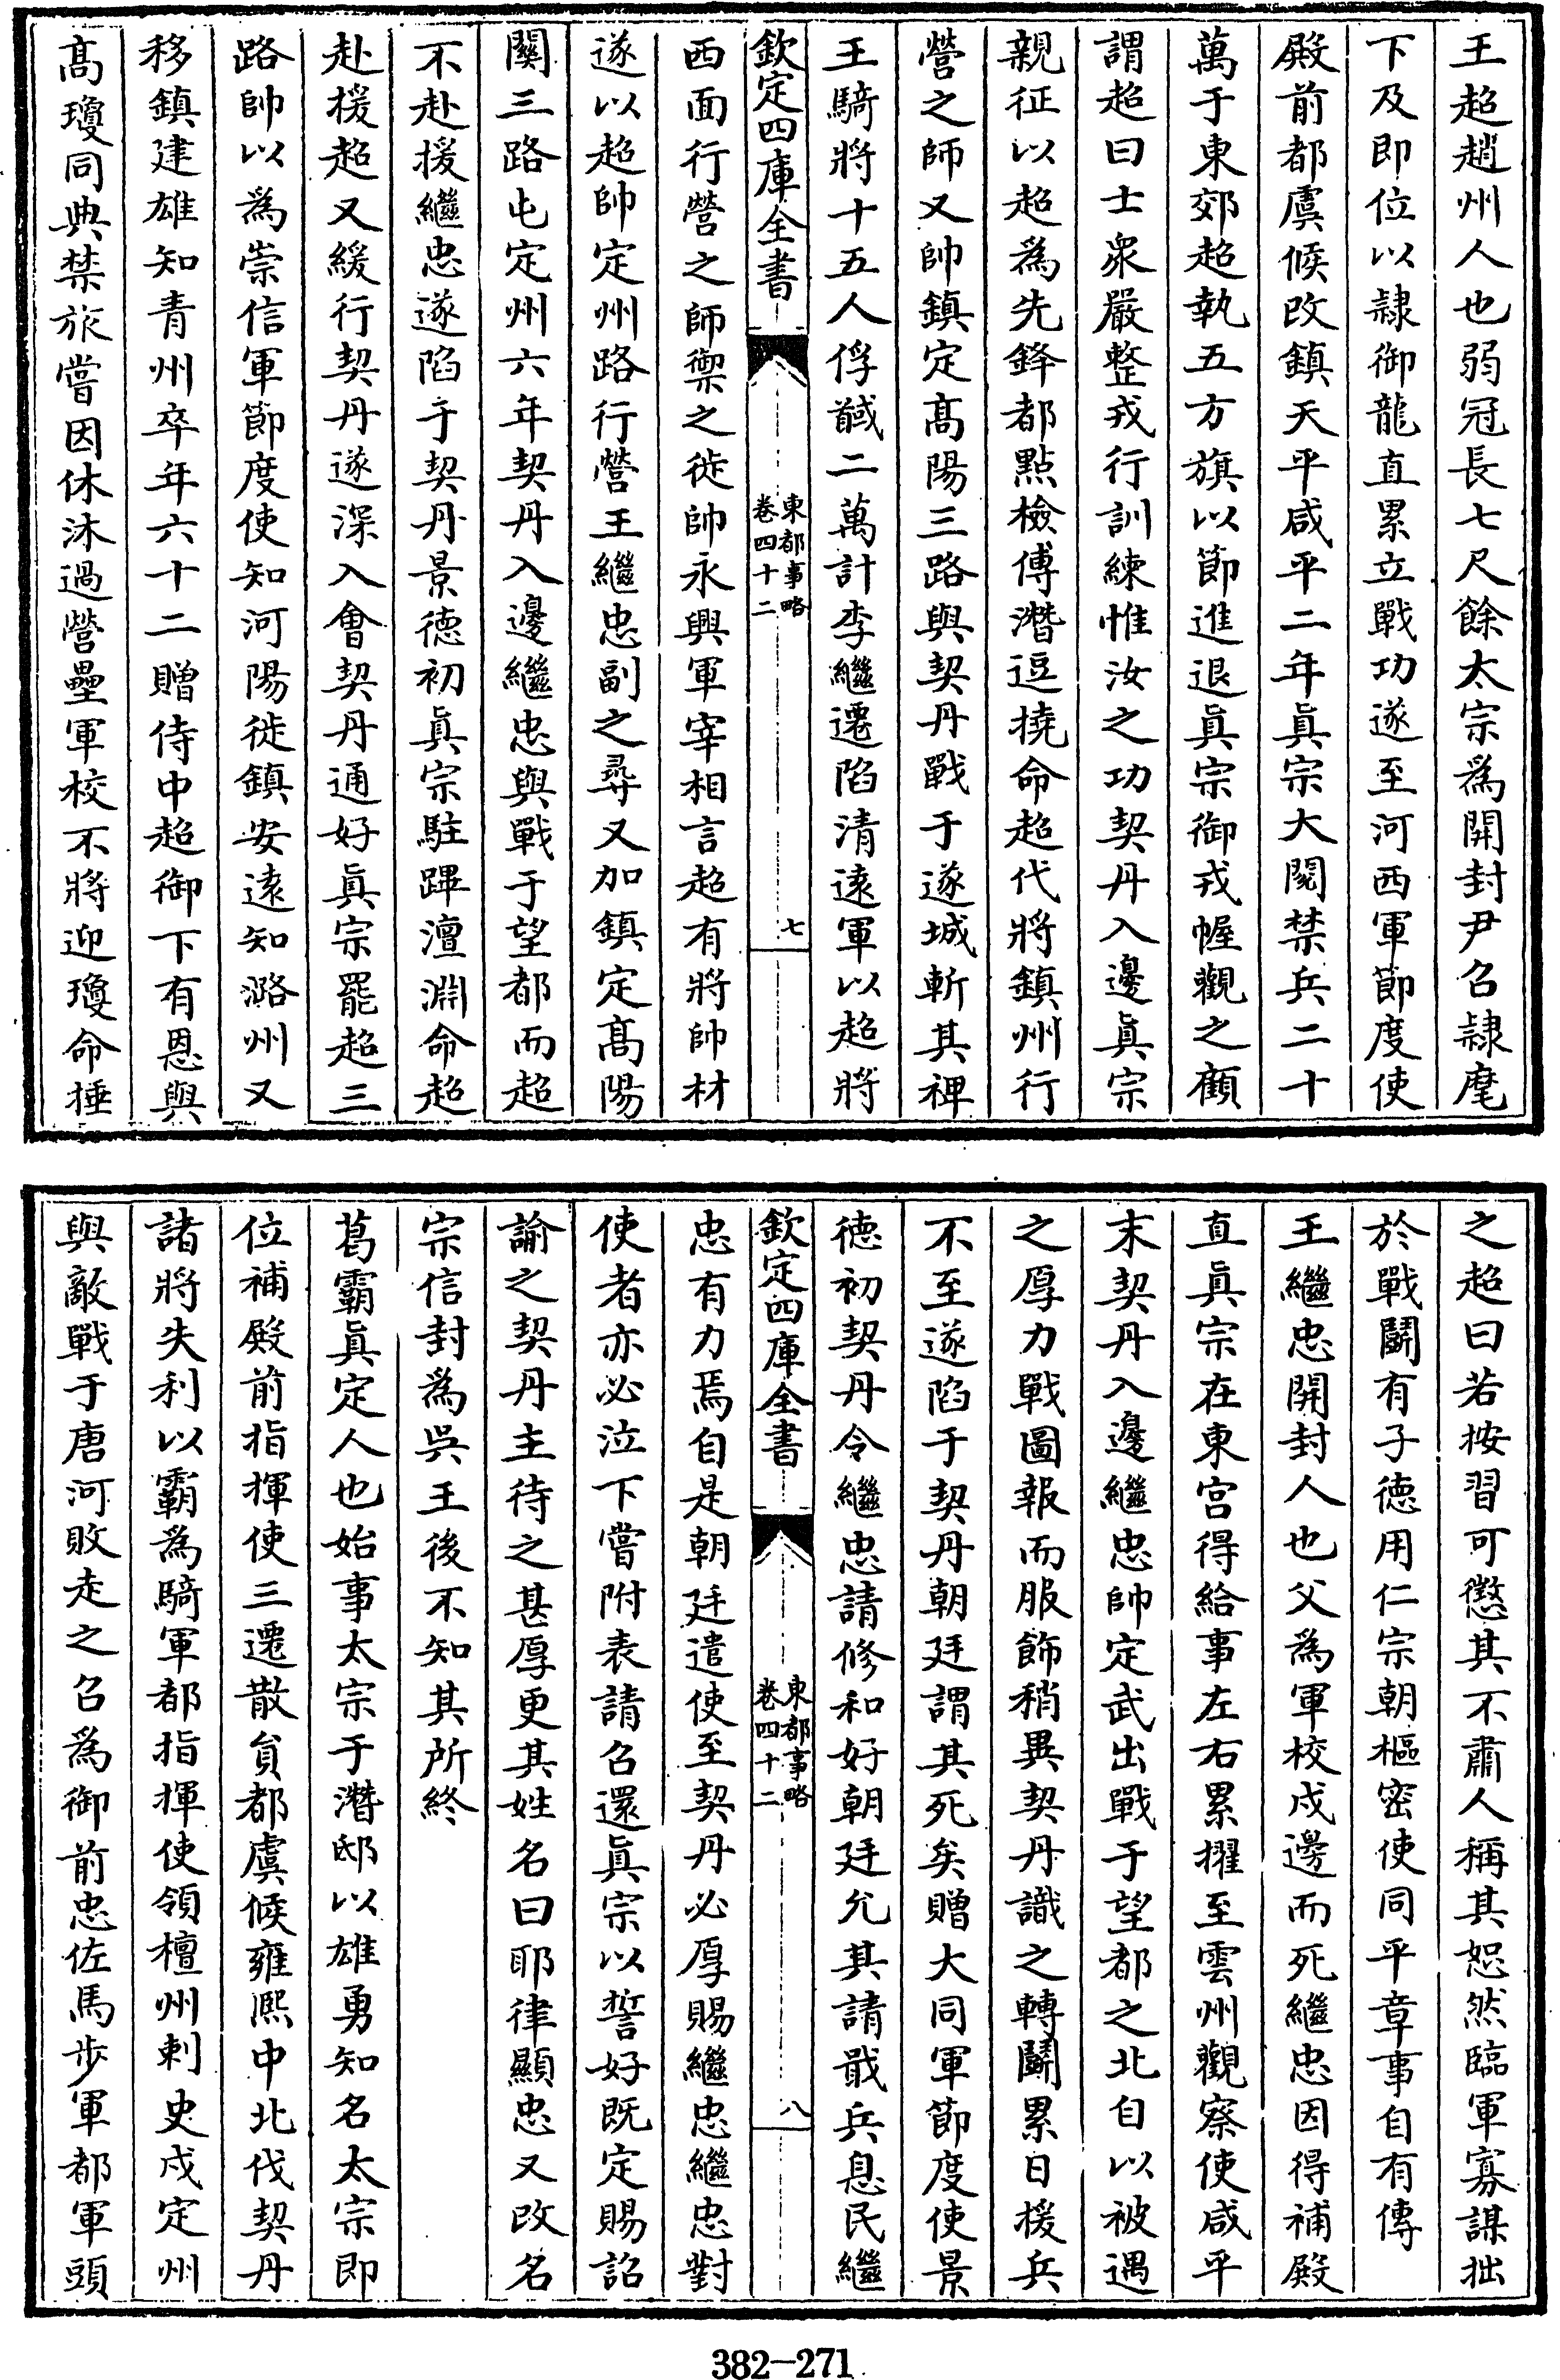 王超趙州人也弱冠長七尺餘太宗為開封尹召隷麾
下及即位以隷御龍直累立戰功遂至河西軍節度使
殿前都虞候改鎮天平咸平二年真宗大閱禁兵二十
萬于東郊超執五方旗以節進退真宗御戎幄觀之顧
謂超曰士衆嚴整戎行訓練惟汝之功契丹入邊真宗
親征以超為先鋒都點檢傅潛逗撓命超代將鎮州行
營之師又帥鎮定髙陽三路與契丹戰于遂城斬其禆
王騎將十五人俘馘二萬計李繼遷陷清逺軍以超將
欽定四庫全書
東都事略
卷四十二
七
西面行營之師禦之徙帥永興軍宰相言超有將帥材
遂以超帥定州路行營王繼忠副之尋又加鎮定髙陽
闗三路屯定州六年契丹入邊繼忠與戰于望都而超
不赴援繼忠遂陷于契丹景徳初真宗駐蹕澶淵命超
赴援超又緩行契丹遂深入會契丹通好真宗罷超三
路帥以為崇信軍節度使知河陽徙鎮安逺知潞州又
移鎮建雄知青州卒年六十二贈侍中超御下有恩與
髙瓊同典禁旅嘗因休沐過營壘軍校不將迎瓊命捶
之超曰若按習可懲其不肅人稱其恕然臨軍寡謀拙
於戰鬭有子徳用仁宗朝樞密使同平章事自有傳
王繼忠開封人也父為軍校戍邊而死繼忠因得補殿
直真宗在東宫得給事左右累擢至雲州觀察使咸平
末契丹入邊繼忠帥定武出戰于望都之北自以被遇
之厚力戰圖報而服飾稍異契丹識之轉鬭累日援兵
不至遂陷于契丹朝廷謂其死矣贈大同軍節度使景
徳初契丹令繼忠請修和好朝廷允其請戢兵息民繼
欽定四庫全書
東都事略
卷四十二
八
忠有力焉自是朝廷遣使至契丹必厚賜繼忠繼忠對
使者亦必泣下嘗附表請召還真宗以誓好既定賜詔
諭之契丹主待之甚厚更其姓名曰耶律顯忠又改名
宗信封為吳王後不知其所終
葛霸真定人也始事太宗于潛邸以雄勇知名太宗即
位補殿前指揮使三遷散貟都虞候雍熙中北伐契丹
諸將失利以霸為騎軍都指揮使領檀州刺史戍定州
與敵戰于唐河敗走之召為御前忠佐馬步軍都軍頭
382-271